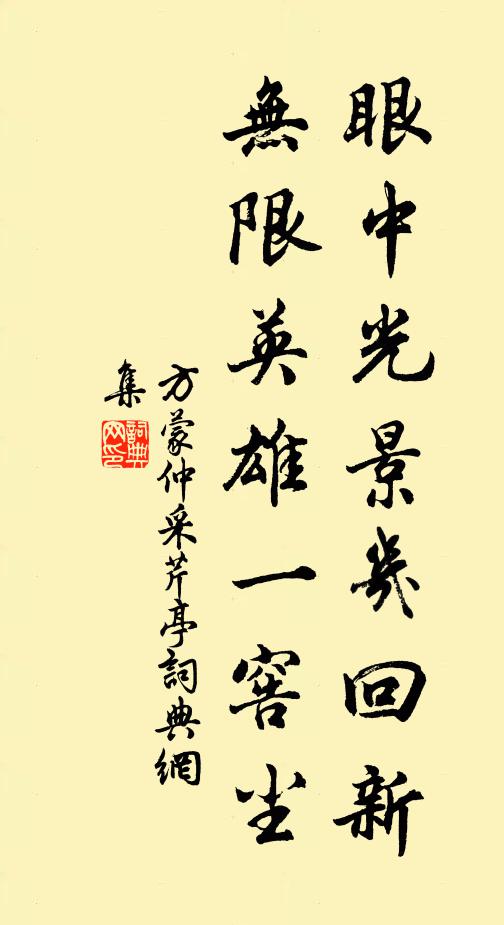 眼中光景幾回新
無限英雄一窖尘
方蒙仲采芹亭詞典網
集
詞典
网印